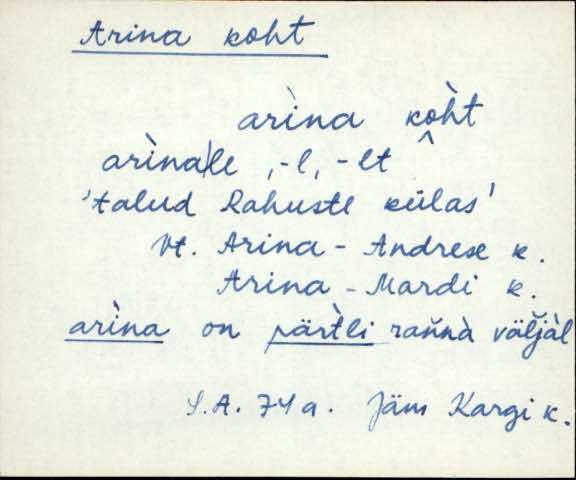 Arina koht
arìna kòht
arìna|le, -l, -lt
'talud Rahuste külas'
Vt. Arina - Andrese k.
Arina - Mardi k.
arìna on pärtli rañnà väljàl
S.A. 74 a. Jäm Kargi k.